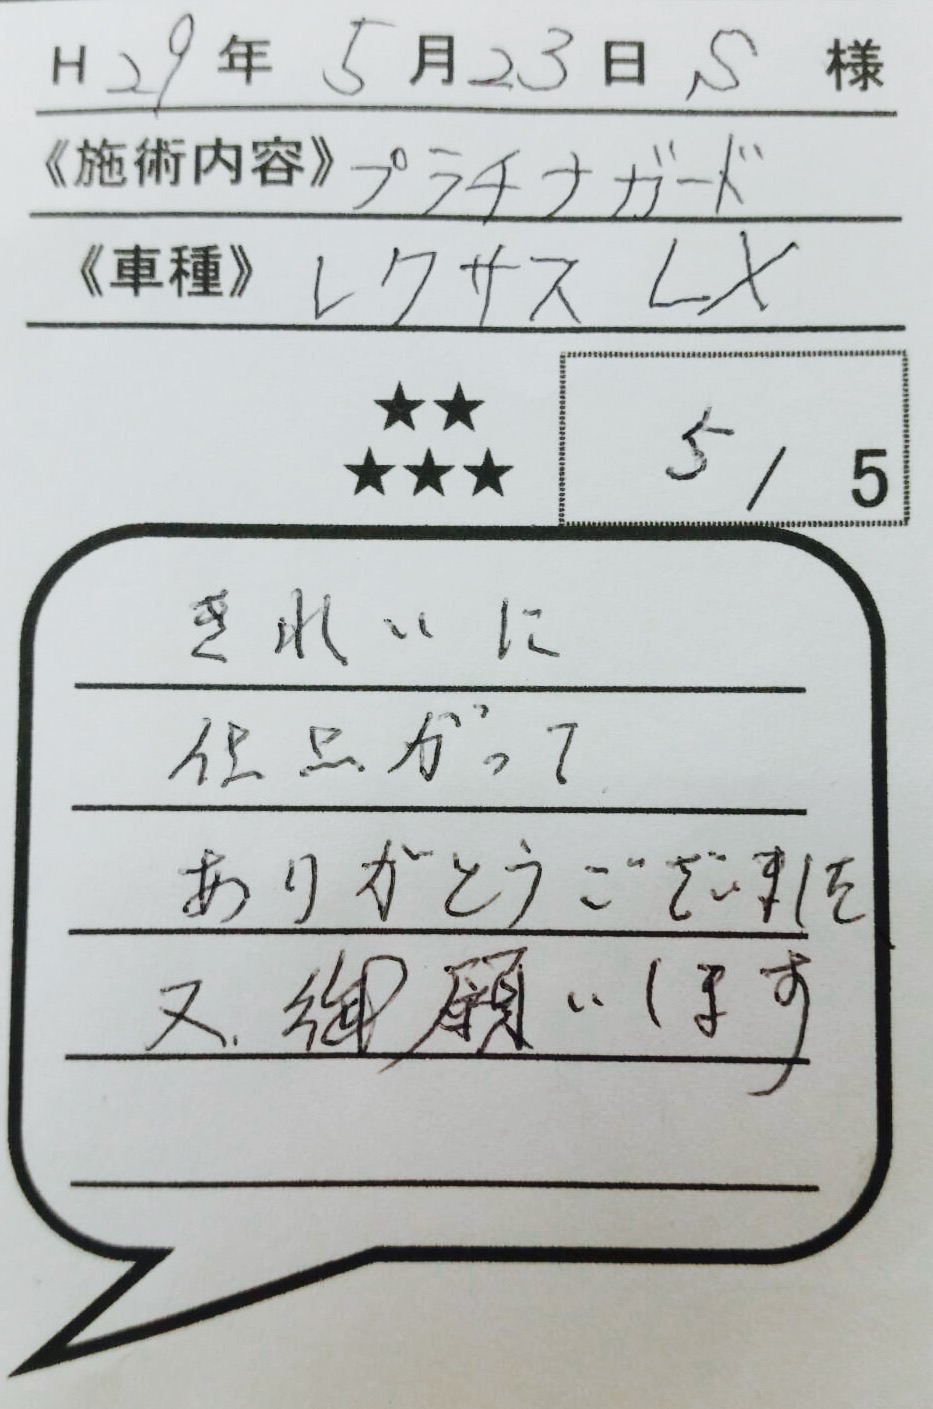 H29年 5月23日 S 様
《施術内容》プラチナガード
《車種》レクサス LX
★★
★★★
5/5
きれいに
仕上がって
ありがとうございました
又、御願いします